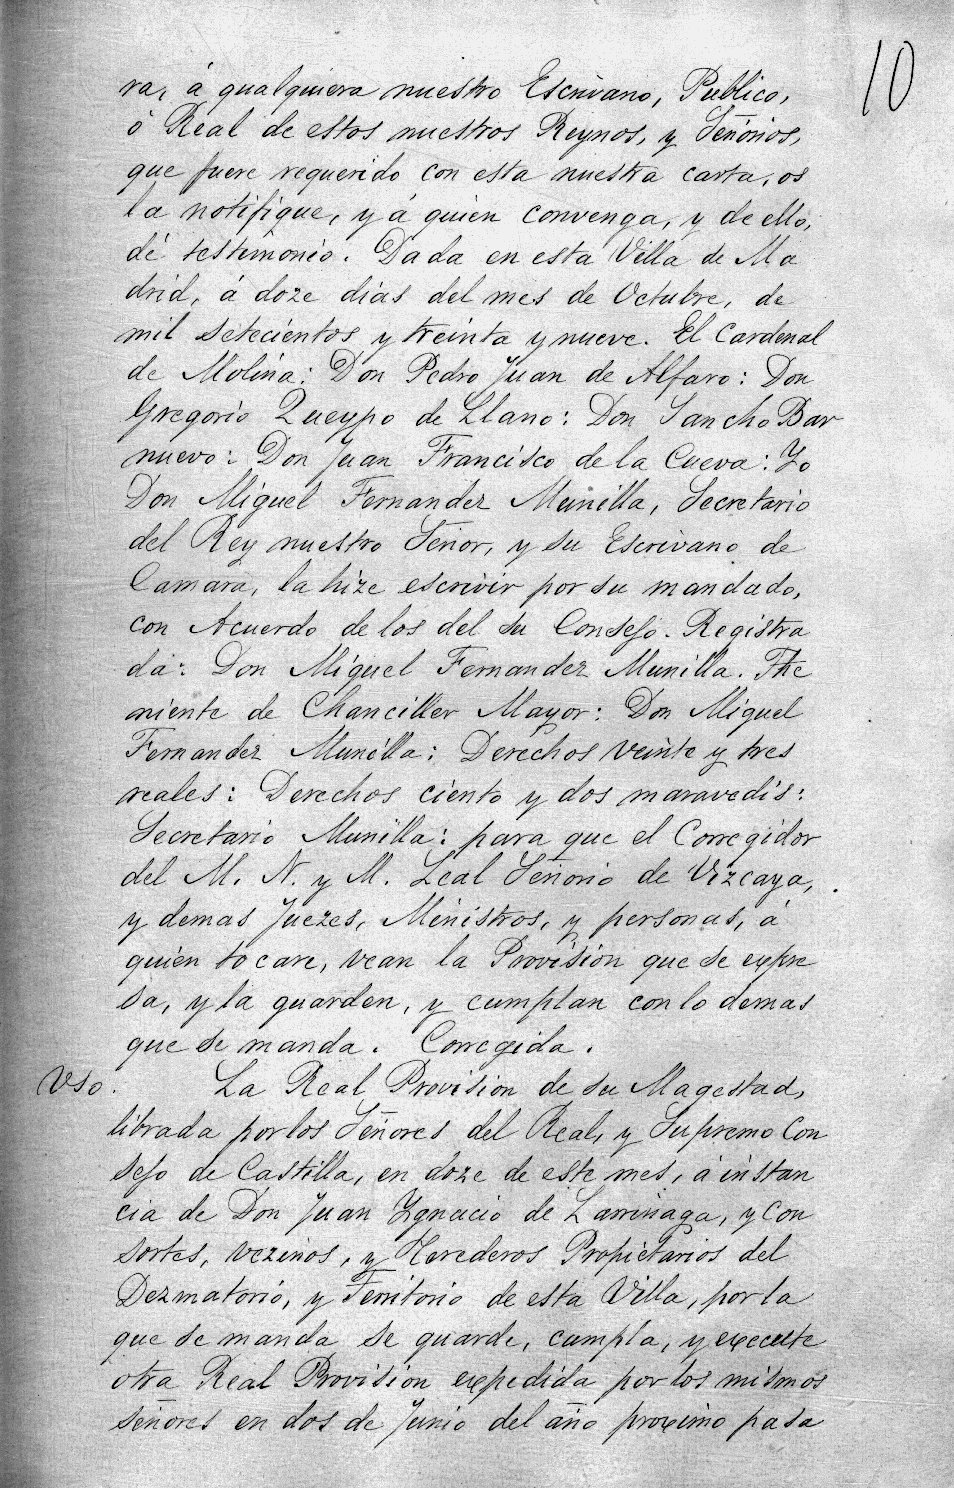 10
ra, á qualquiera nuestro Escrivano, Publico,
ò Real de estos nuestros Reynos, y Señorios,
que fuere requerido con esta nuestra carta, os
la notifique, y á quien convenga, y de ello,
dé testimonio. Dada en esta Villa de Ma
drid, á doze dias del mes de Octubre, de
mil setecientos y treinta y nueve. El Cardenal
de Molina: Don Pedro Juan de Alfaro: Don
Gregorio Queypo de Llano: Don Sancho Bar
nuevo: Don Juan Francisco de la Cueva: Yo
Don Miguel Fernandez Munilla, Secretario
del Rey nuestro Señor, y su Escrivano de
Camara, la hize escrivir por su mandado,
con Acuerdo de los del su Consejo. Registra
da: Don Miguel Fernandez Munilla. The
niente de Chanciller Mayor: Don Miguel
Fernandez Munilla: Derechos veinte y tres
reales: Derechos ciento y dos maravedis:
Secretario Munilla: para que el Corregidor
del M. N. y M. Leal Señorio de Vizcaya,
y demas Juezes, Ministros, y personas, á
quien tocare, vean la Provision que se expre
sa, y la guarden, y cumplan con lo demas
que se manda. Corregida.
Vso. La Real Provision de su Magestad,
librada por los Señores del Real, y Supremo Con
sejo de Castilla, en doze de este mes, á instan
cia de Don Juan Ygnacio de Larrinaga, y Con
sortes, vezinos, y Herederos Propietarios del
Dezmatorio, y Territorio de esta Villa, por la
que se manda se guarde, cumpla, y execute
otra Real Provision expedida por los mismos
señores en dos de Junio del año proximo pasa